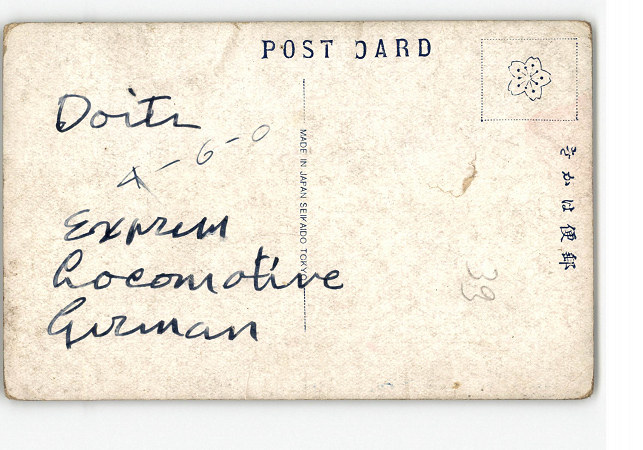 POST CARD
4-6-0
Express
Locomotive
German
MADE IN JAPAN SEIKAIDO TOKYO
郵便はかき